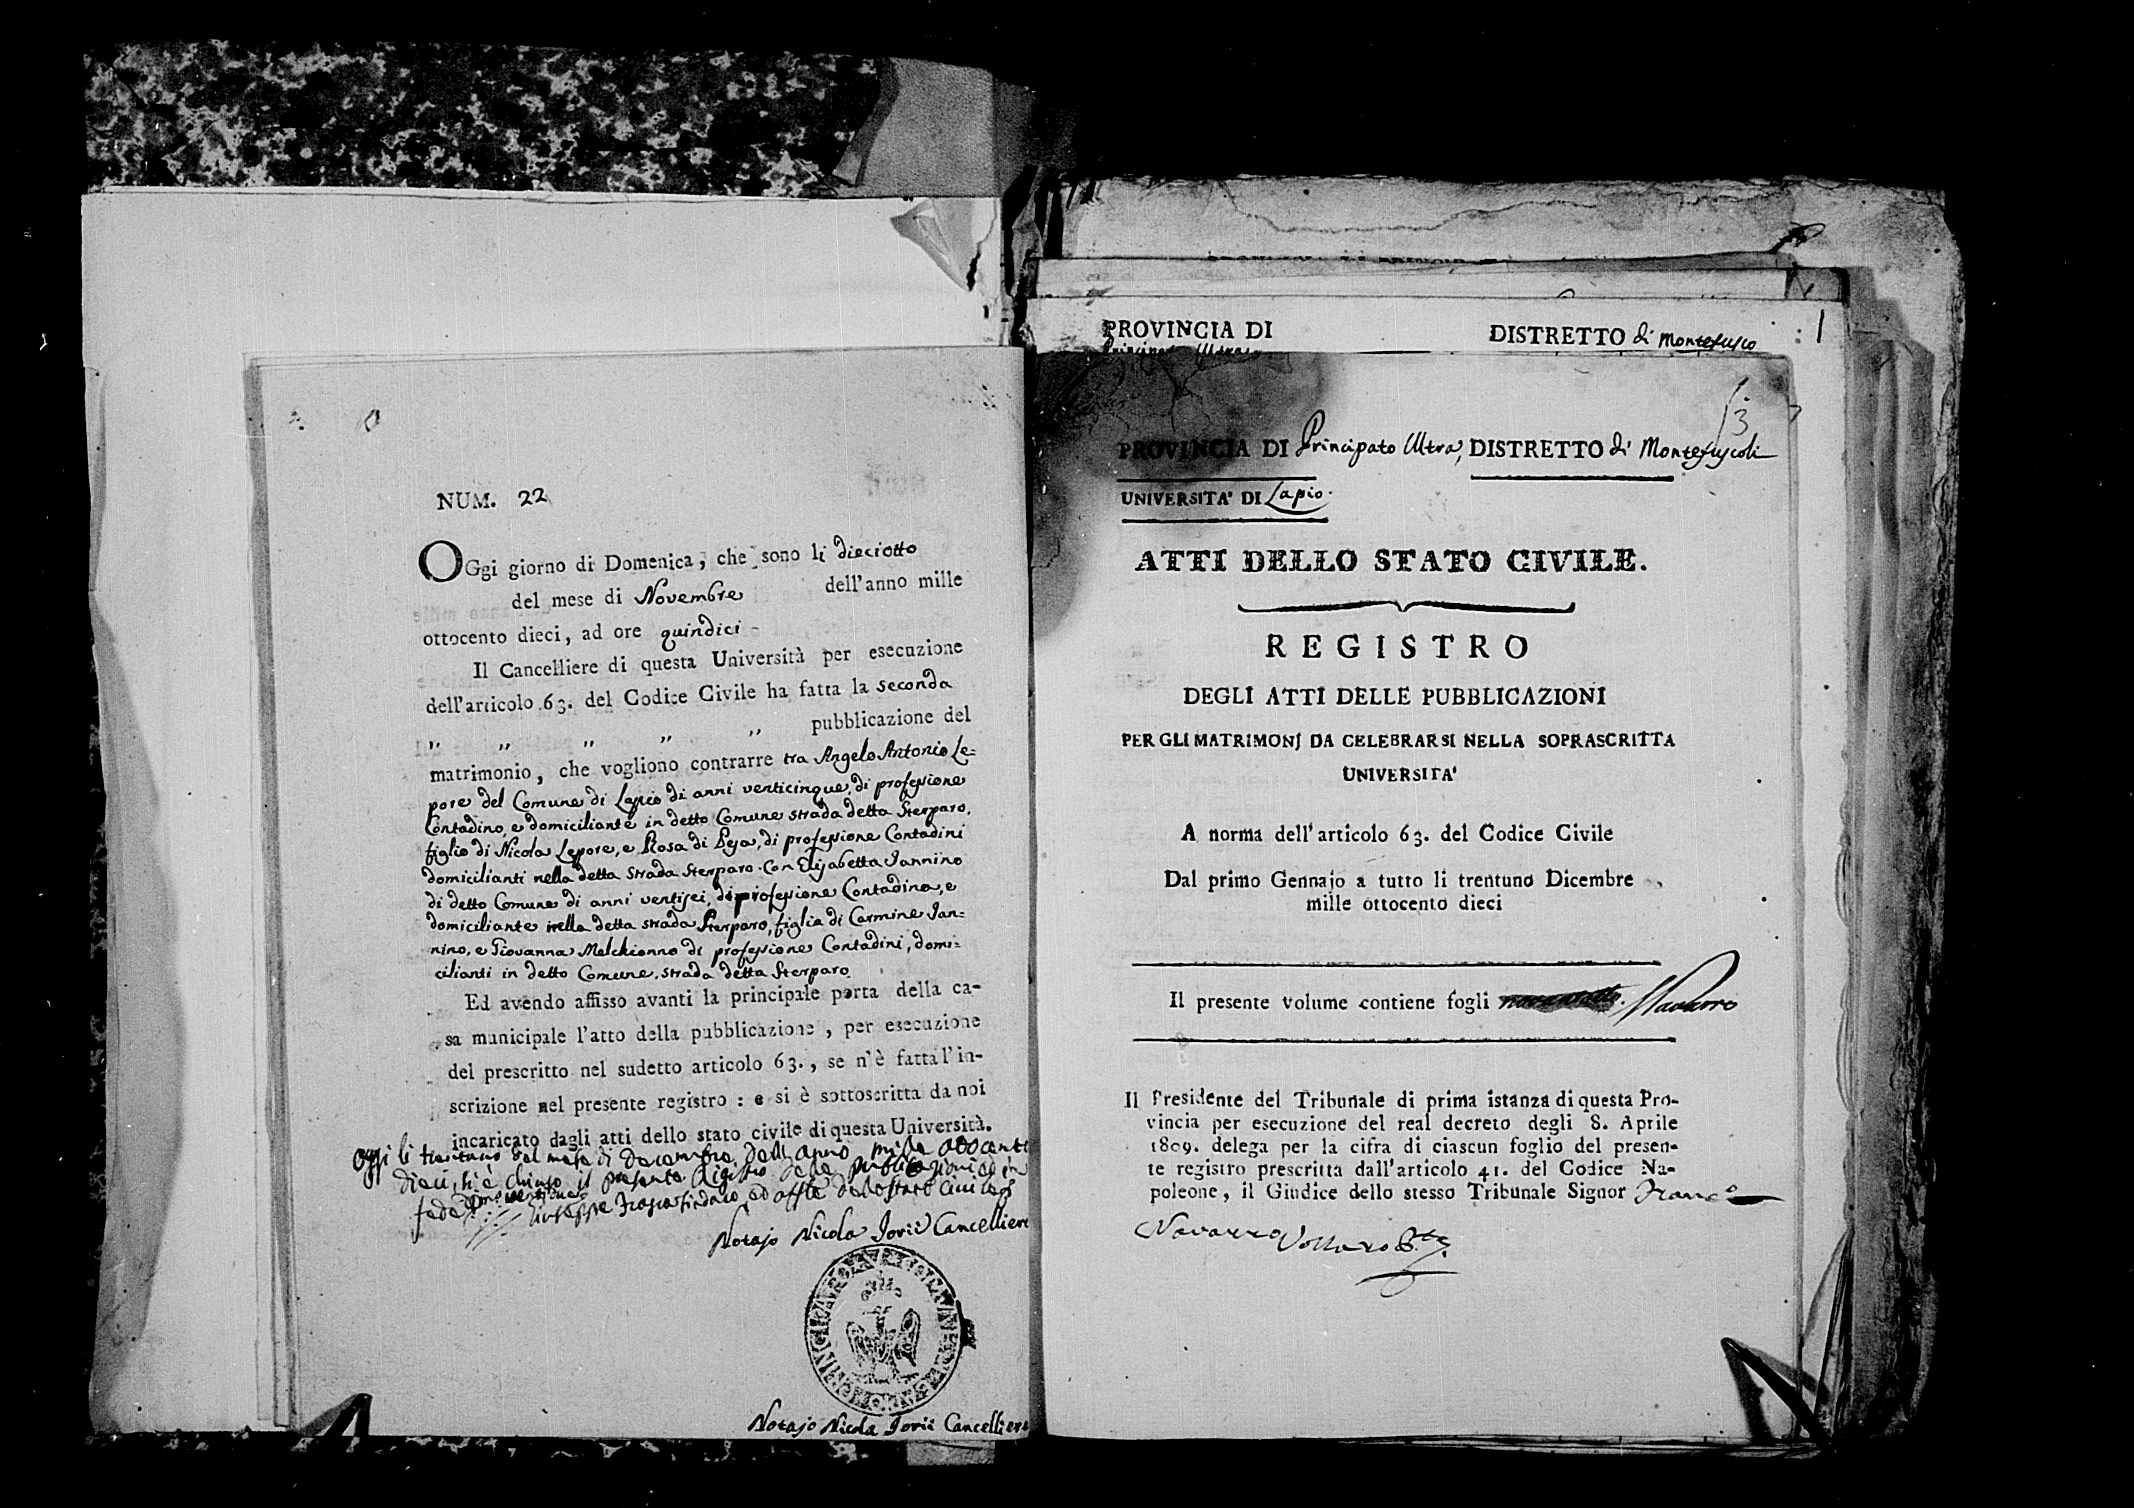 NUM. 22
OGgi giorno di Domenica, che sono li dieciotto
del mese di Novembre dell'anno mille
ottocento dieci, ad ore quindici
Il Cancelliere di questa Università per esecuzione
dell'articolo 63. del Codice Civile ha fatta la seconda
,, ,, ,, ,, ,, pubblicazione del
matrimonio, che vogliono contrarre tra Angelo Antonio Le=
pore del Comune di Lapio di anni venticinque, di professione
Contadino, e domiciliante in detto Comune strada detta Sterparo,
figlio di Nicola Lepore, e Rosa di Peja, di professione Contadini
domicilianti nella detta strada Sterparo. Con Elisabetta Jannino
di detto Comune di anni ventisei, di professione Contadina, e
domiciliante nella detta strada Sterparo, figlia di Carmine Jan=
nino, e Giovanna Melchionno di professione Contadini, domi=
cilianti in detto Comune, strada detta Sterparo
Ed avendo affisso avanti la principale porta della ca-
sa municipale l'atto della pubblicazione, per esecuzione
del prescritto nel sudetto articolo 63., se n'è fatta l'in-
scrizione nel presente registro: e si è sottoscritta da noi
incaricato dagli atti dello stato civile di questa Università.
Oggi li trentuno del mese di Decembre dell'anno mille ottocento
dieci, si è chiuso il presente Registro delle pubblicazioni ed in
fede Giuseppe sindaco, ed dello stato civile
Notajo Nicola Jorii Cancelliere
Notajo Nicola Jorii Cancelliere
PROVINCIA DI DISTRETTO di Montefusco : 1
Principato Ultra
3
PROVINCIA DI Principato Ultra, DISTRETTO di Montefuscoli
UNIVERSITA' DI Lapio.
ATTI DELLO STATO CIVILE.
REGISTRO
DEGLI ATTI DELLE PUBBLICAZIONI
PER GLI MATRIMONJ DA CELEBRARSI NELLA SOPRASCRITTA
UNIVERSITA'
A norma dell'articolo 63. del Codice Civile
Dal primo Gennajo a tutto li trentuno Dicembre
mille ottocento dieci
Il presente volume contiene fogli Navarro
Il Presidente del Tribunale di prima istanza di questa Pro-
vincia per esecuzione del real decreto degli 8. Aprile
1809. delega per la cifra di ciascun foglio del presen-
te registro prescritta dall'articolo 41. del Codice Na-
poleone, il Giudice dello stesso Tribunale Signor Franc.o
Navarro